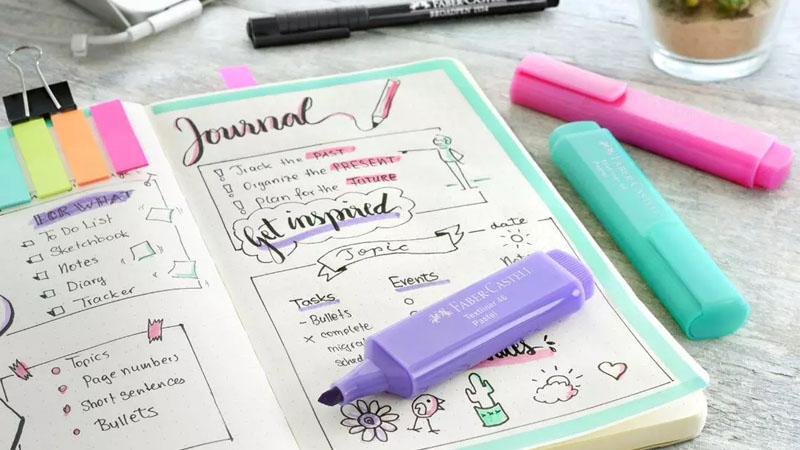 FOR WHAT
To Do List
Sketchbook
Notes
Diary
Tracker
Topics
Page numbers
Short sentences
Bullets
Journal
! Track the PAST
! Organize the PRESENT
! Plan for the FUTURE
Get inspired
Topic
date
Tasks
Events
- Bullets
x complete
FABER-CASTELL
Textliner 46
Pastel
FABER-CASTELL
FABER-CASTELL
Textliner 46
Pastel